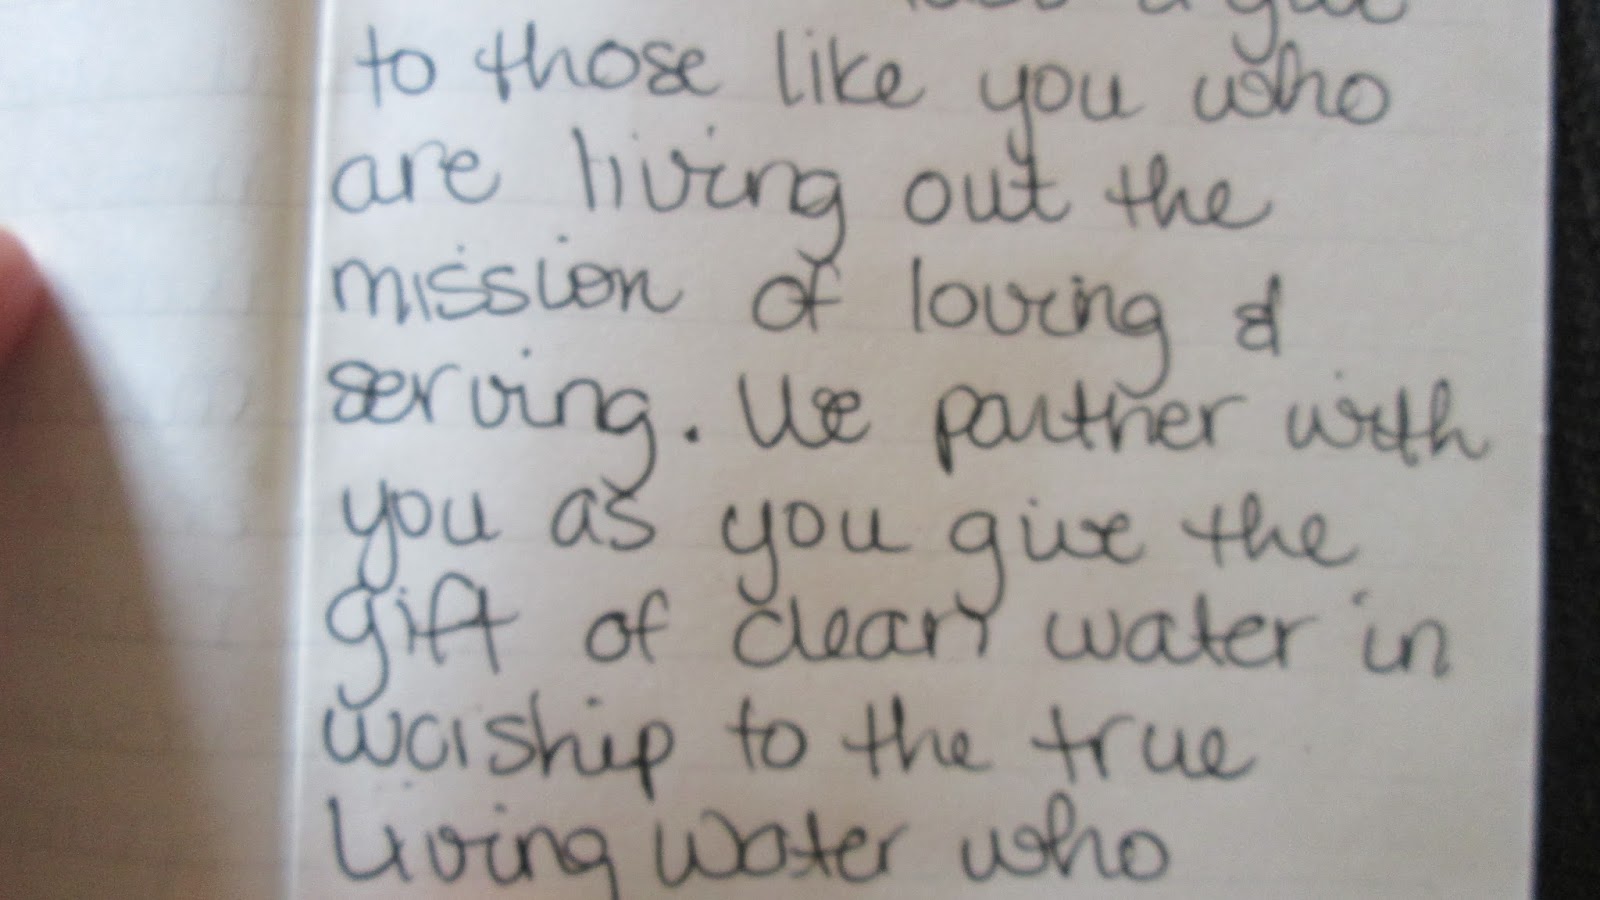 to those like you who
are living out the
mission of loving &
serving. We partner with
you as you give the
gift of clean water in
worship to the true
Living Water who